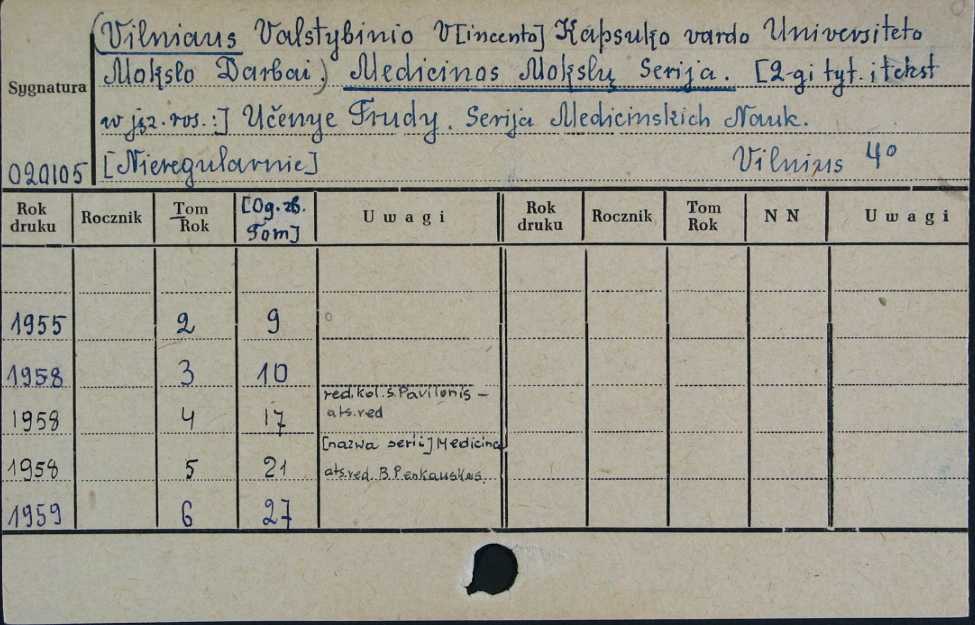 (Vilniaus Valstybinio V[incento] Kapsuko vardo Universiteto
Mokslo Darbai.) Medicinos Mokslų Serija. [2-gi tyt. i tekst
Sygnatura
w jęz. ros.:] Učenye Trudy. Serija Medicinskich Nauk.
020105 [Nieregularnie] Vilnius 4°
Rok druku Rocznik Tom Rok [Og. zb. Tom] Uwagi Rok druku Rocznik Tom Rok NN Uwagi
1955 2 9
1958 3 10
red. kol. S. Pavilonis –
1958 4 17 ats. red
[nazwa serii] Medicina
1958 5 21 ats. red. B. Penkauskas.
1959 6 27